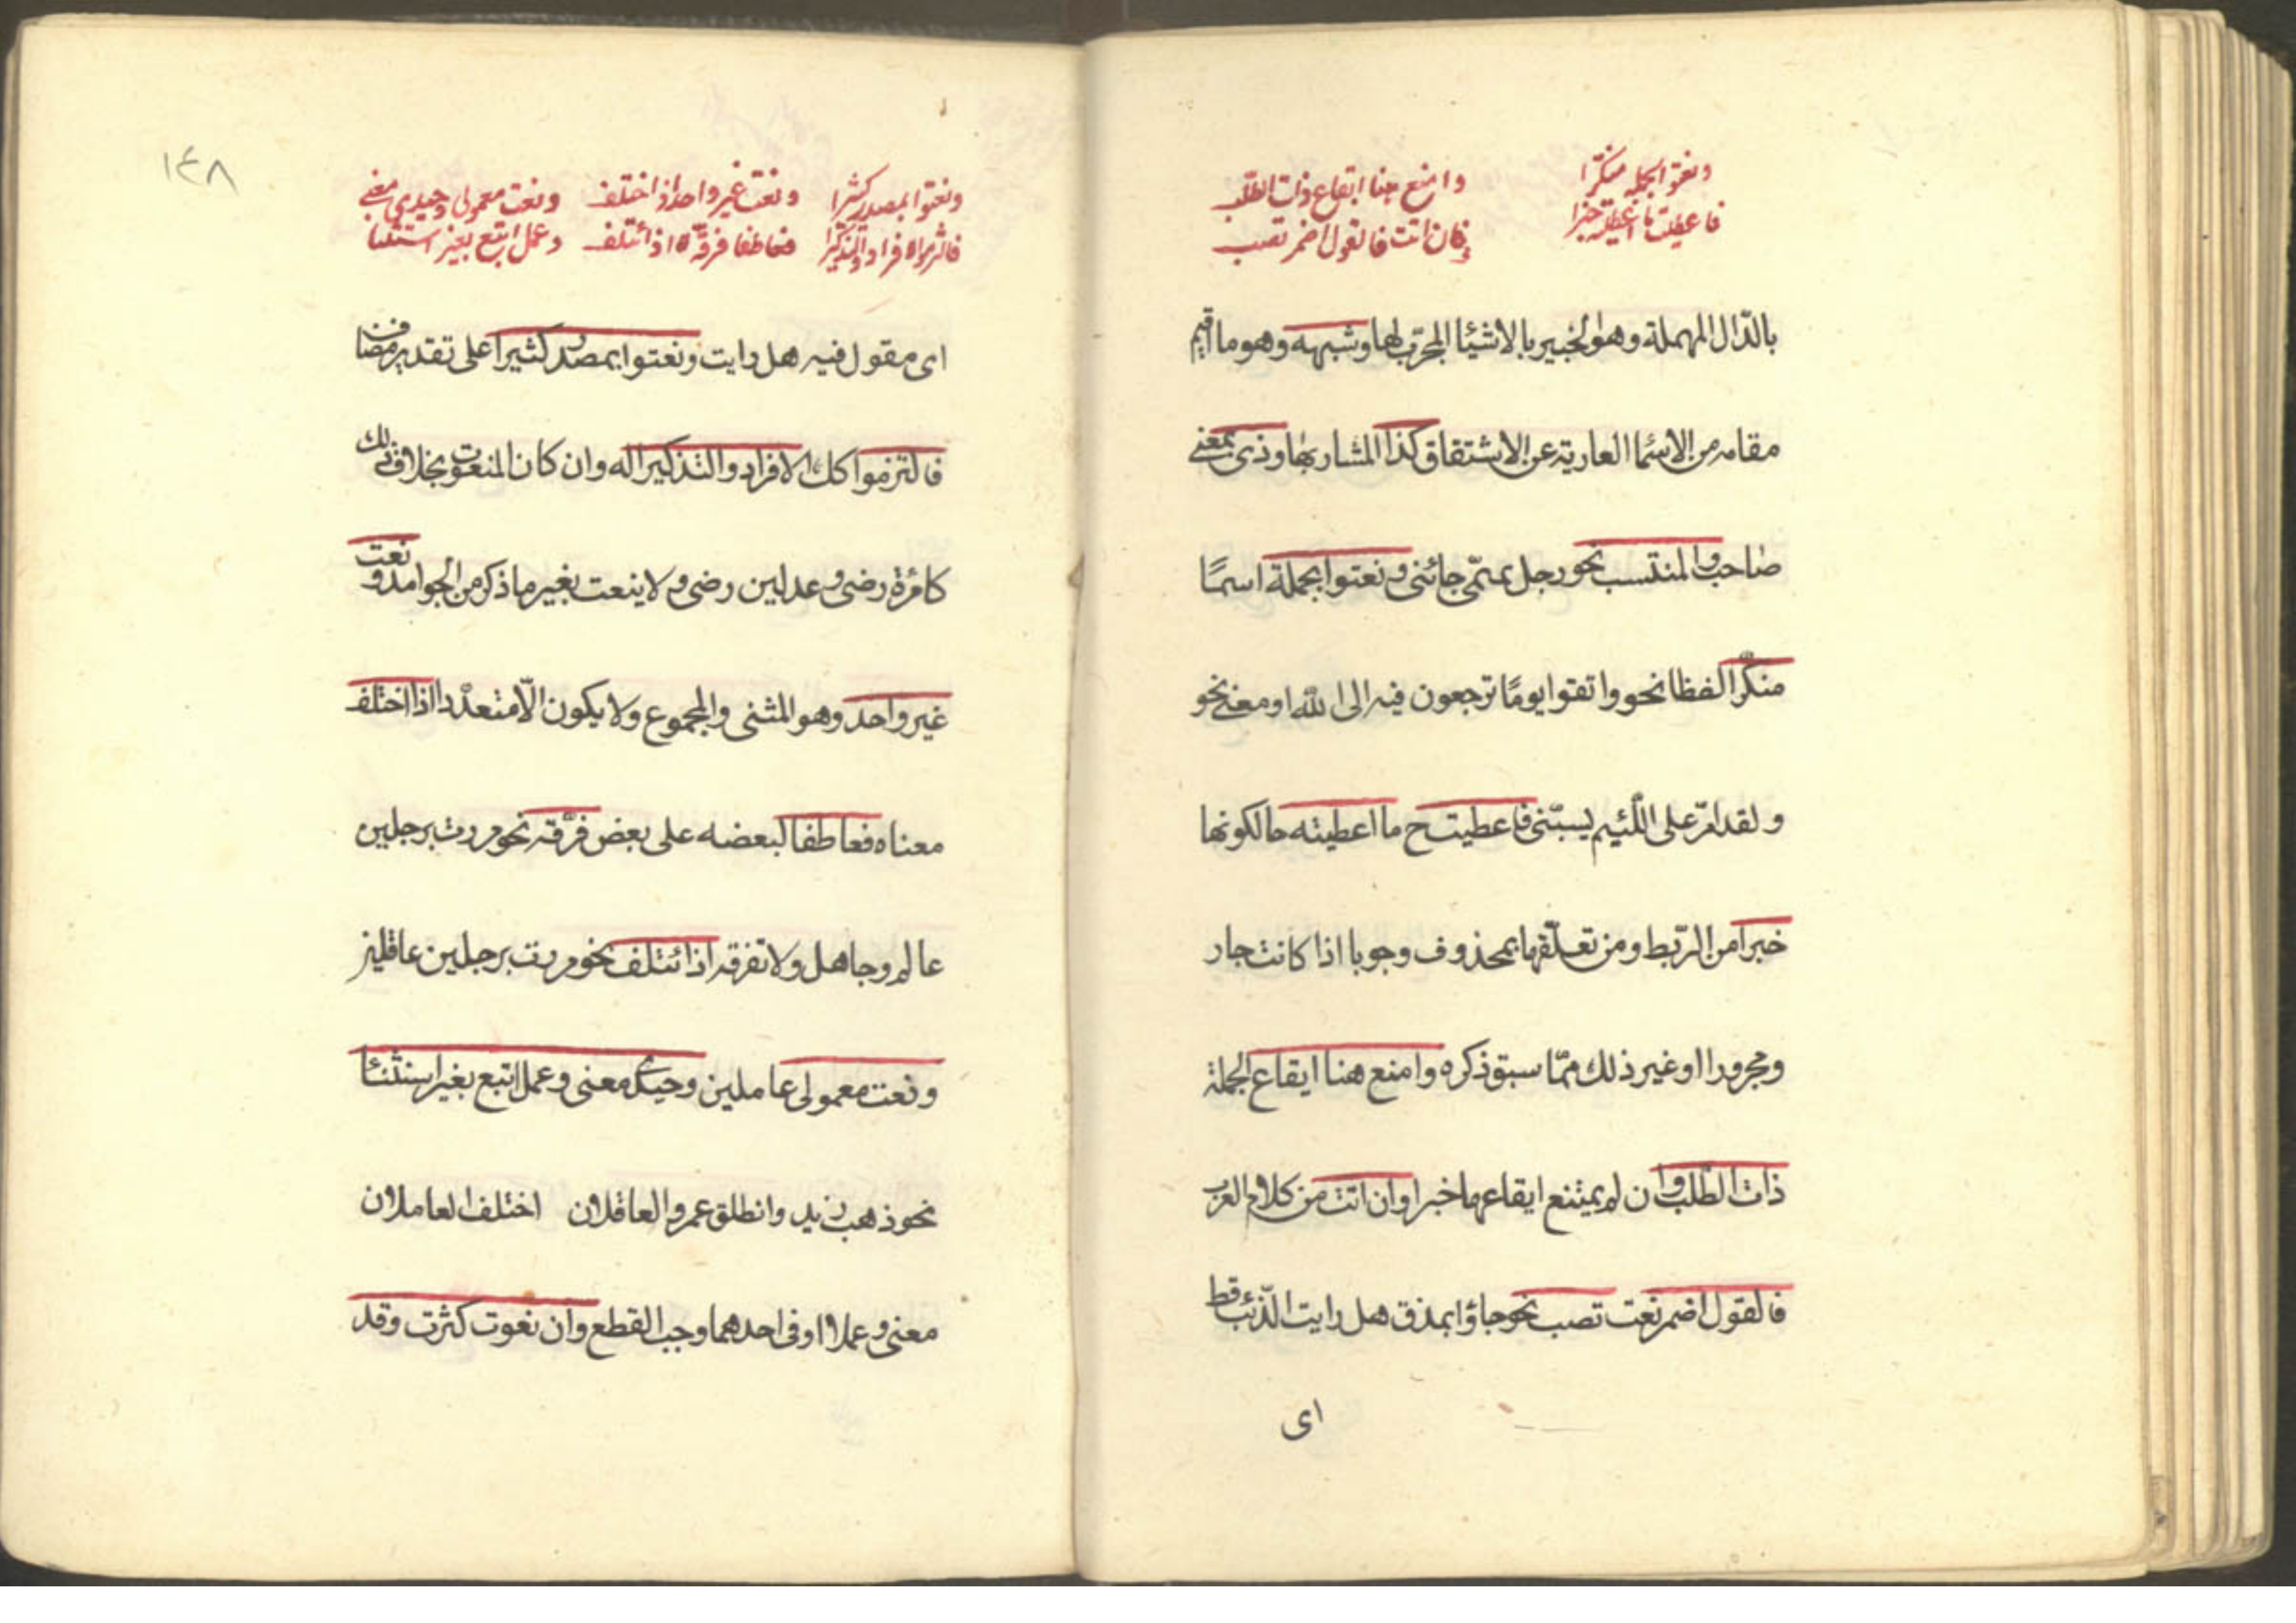 ونعتوا بجملة منكّرا
فاعطيت ما اعطيته خبرا
وامنع هنا ايقاع ذات الطلب
وان اتت فالقول اضمر تصب
بالدّال المهملة وهو الخبير بالاشيٰا المجرّب لها وشبهه وهو ما اقيم
مقامه من الاسمٰا العارية عن الاشتقاق كذا المشار بها وذى بمعنى
صاحب والمنتسب نحو رجل تميمّى جائنى ونعتوا بجملة اسمًا
منكّرا لفظا نحو واتقوا يومًا ترجعون فيه الى الله او معنى نحو
ولقد امرّ على اللّئيم يسبّنى فاعطيت ح ما اعطيته حالكونها
خبرا من الرّبط ومن تعلّقها بمحذوف وجوبا اذا كانت جار
ومجرورا او غير ذلك ممّا سبق ذكره وامنع هنا ايقاع الجملة
ذات الطّلب وان لم يمتنع ايقاعها خبرا وان اتت من كلام العرب
فالقول اضمر نعت تصب نحو جاؤا بمذق هل رايت الذّئب قط
اى
١٤٨
ونعتوا بمصدر كثيرا
فالتزموا الافراد والتذكيرا
ونعت غير واحد اذا اختلف
فعاطفا فرّقه لا اذا ائتلف
ونعت معمولى وحيدى معنى
وعمل اتبع بغير استثنا
اى مقول فيه هل رايت ونعتوا بمصدر كثيرا على تقدير مضاف
فالتزموا كل الافراد والتذكيرا له وان كان المنعوت بخلاف ذلك
كامرٔة رضى وعدلين رضى ولا ينعت بغير ما ذكر من الجوامد ونعت
غير واحد وهو المثنى والمجموع ولا يكون الّا متعدّدا اذا اختلف
معناه فعاطفا لبعضه على بعض فرّقه نحو مررت برجلين
عالم وجاهل ولا تفرقه اذا ائتلف نحو مررت برجلين عاقلين
ونعت معمولى عاملين وحيدى معنى وعمل اتبع بغير استثنٰا
نحو ذهب زيد وانطلق عمرو العاقلان اختلف العاملان
معنى وعملا او فى احدهما وجب القطع وان نعوت كثرت وقد